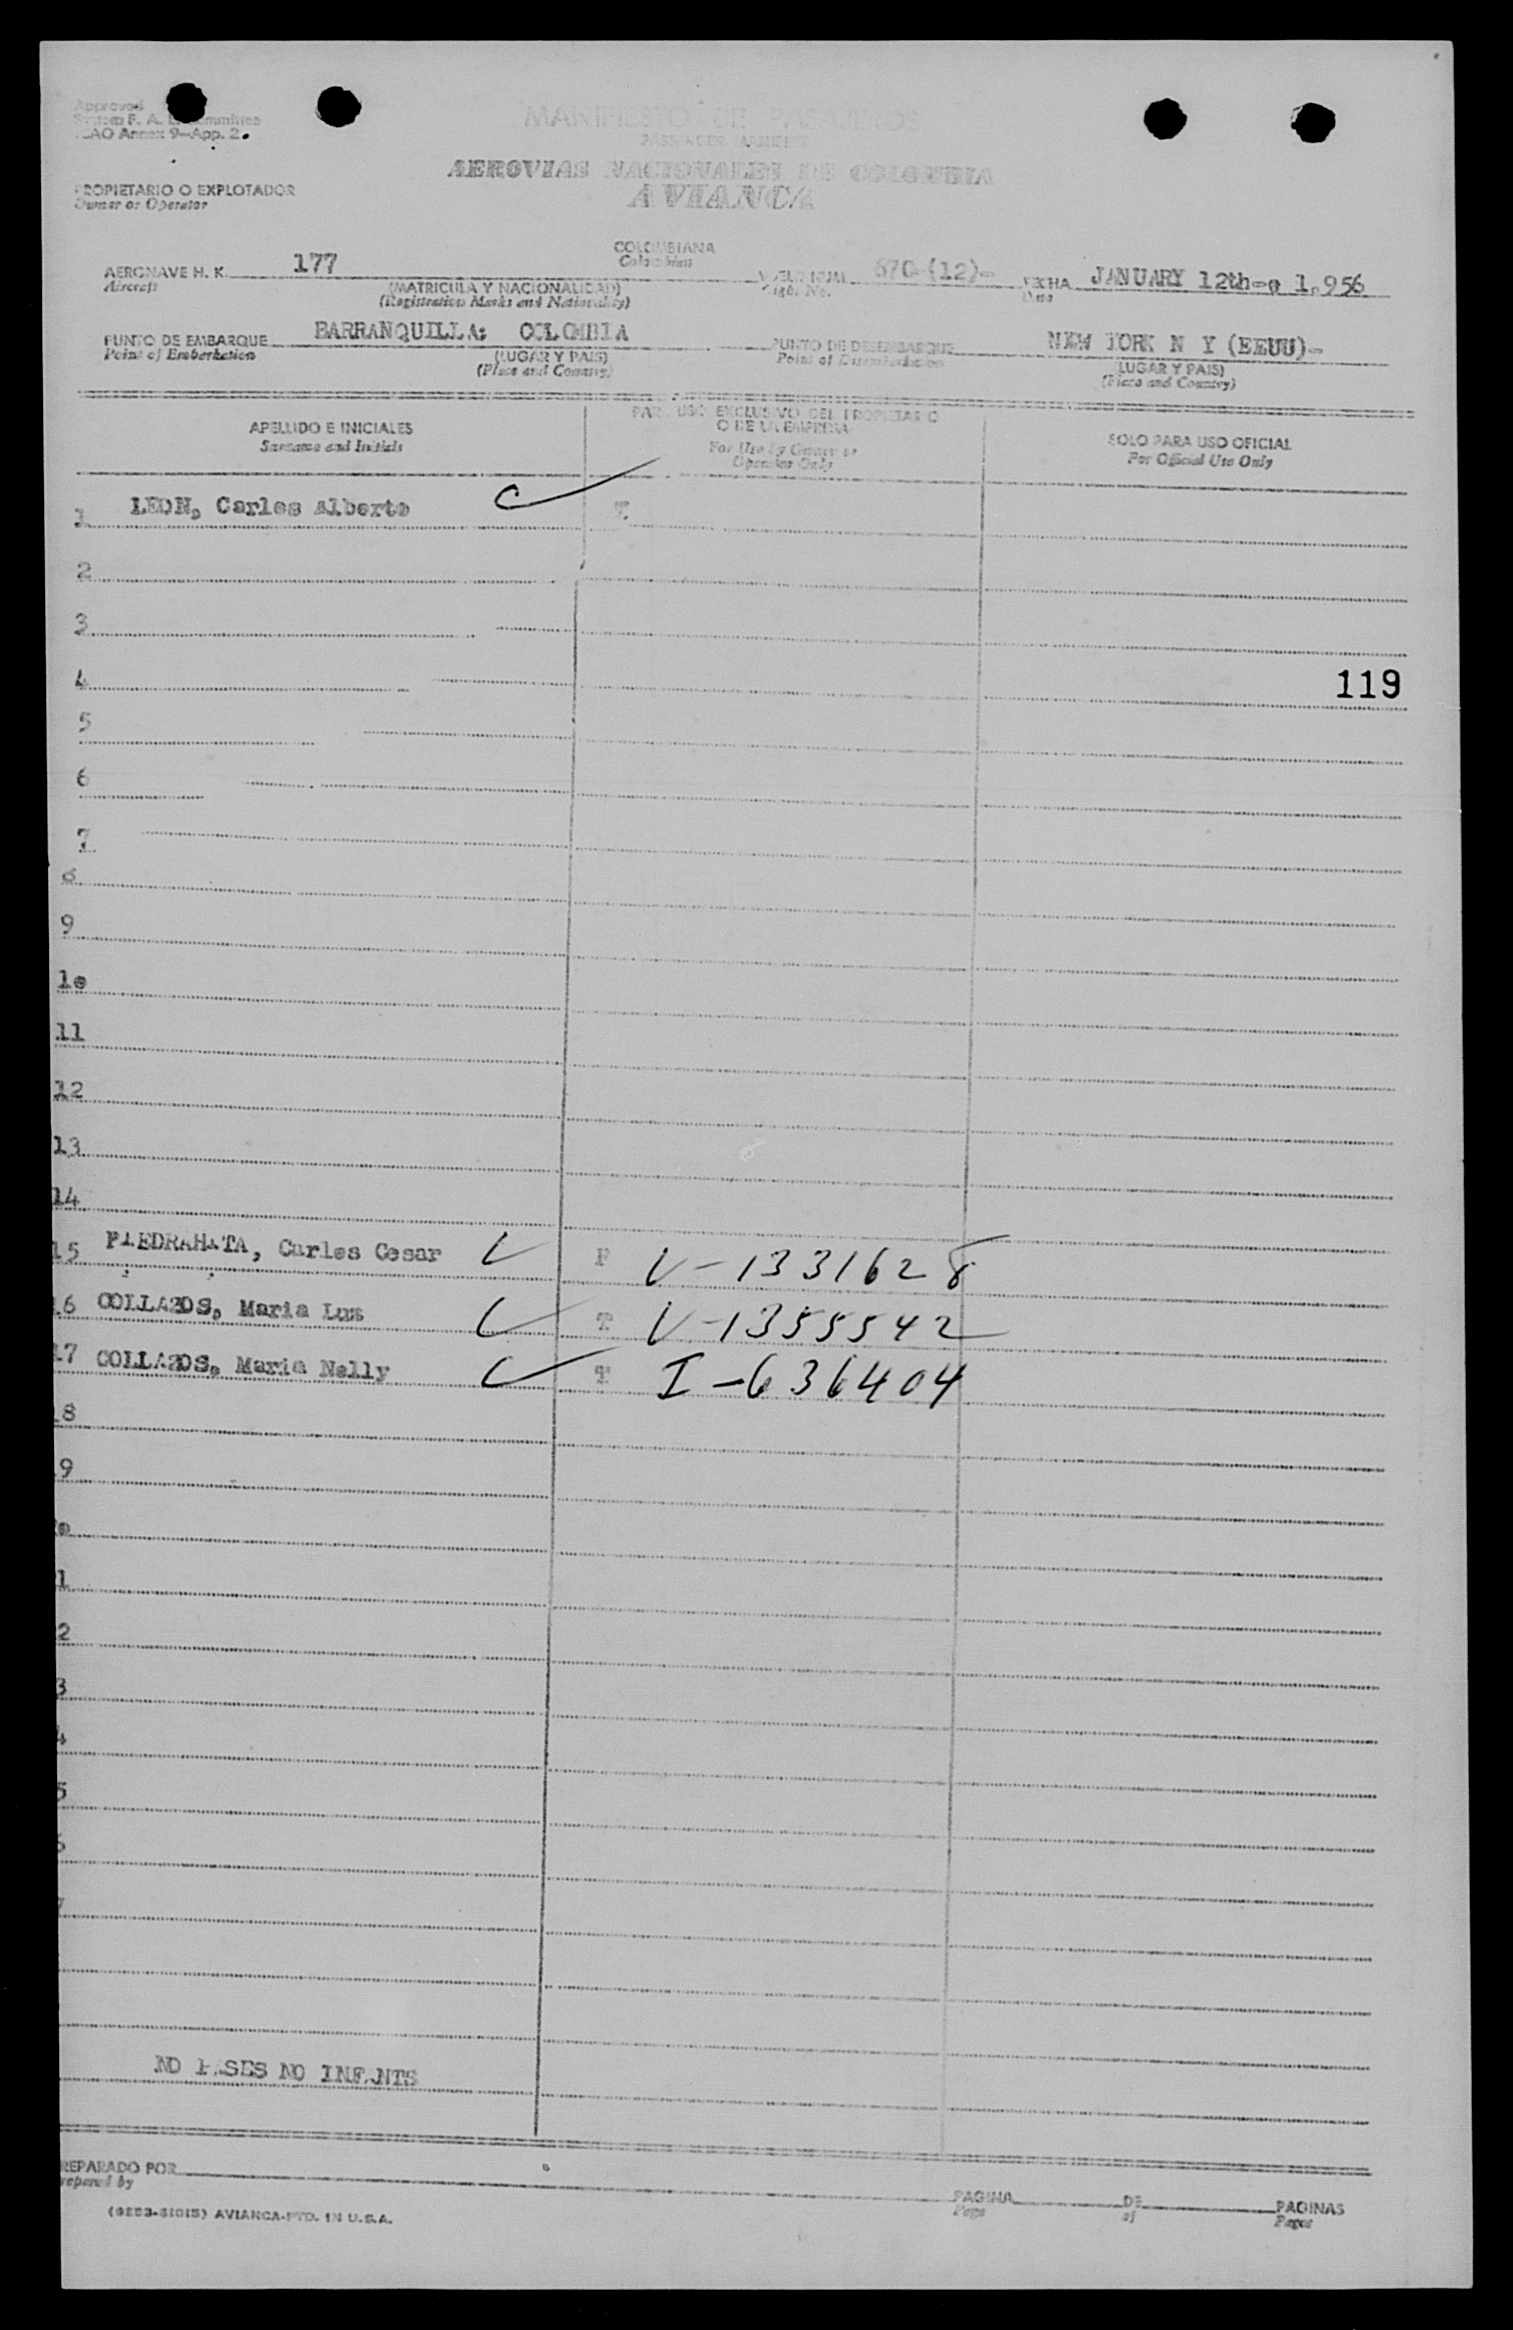 Approved
System F. A. L. Committee
ICAO Annex 9-App. 2
MANIFIESTO DE PASAJEROS
PASSENGER MANIFEST
AEROVIAS NACIONALES DE COLOMBIA
AVIANCA
PROPIETARIO O EXPLOTADOR
Owner or Operator
AERONAVE H. K. 177 COLOMBIANA 670-(12)- FECHA JANUARY 12th-o 1.956
Aircraft (MATRICULA Y NACIONALIDAD) Colombian Date
(Registration Marks and Nationality)
PUNTO DE EMBARQUE BARRANQUILLA: COLOMBIA PUNTO DE DESEMBARQUE NEW YORK N Y (EEUU)-
Point of Embarkation (LUGAR Y PAIS) Point of Disembarkation (LUGAR Y PAIS)
(Place and Country) (Place and Country)
APELLIDO E INICIALES
Surname and Initials
PARA USO EXCLUSIVO DEL PROPIETARIO
O DE LA EMPRESA
For Use by Owner or
Operator Only
SOLO PARA USO OFICIAL
For Official Use Only
1 LEON, Carlos Alberto T.
2
3
4 119
5
6
7
8
9
10
11
12
13
14
15 PIEDRAHITA, Carlos Cesar F V-1331628
16 COLLAZOS, Maria Luz T V-1355542
17 COLLAZOS, Maria Nelly T I-636404
8
9
0
1
2
3
4
5
NO PASES NO INFANTS
REPARADO POR
repared by
PAGINA DE PAGINAS
Page of Pages
AVIANCA-PTD. IN U.S.A.